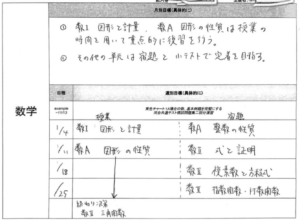 月別目標(具体的に)
① 数I 図形と計量、数A 図形の性質 は授業の
時間を用いて重点的に復習を行う。
② その他の単元は宿題と小テストで定着を目指す。
数学
日程
週別目標(具体的に)
授業
宿題
1/4 数I 図形と計量 数A 整数の性質
1/11 数A 図形の性質 数II 式と証明
1/18 数II 複素数と方程式
1/25 数II 指数関数・対数関数
数II 三角関数